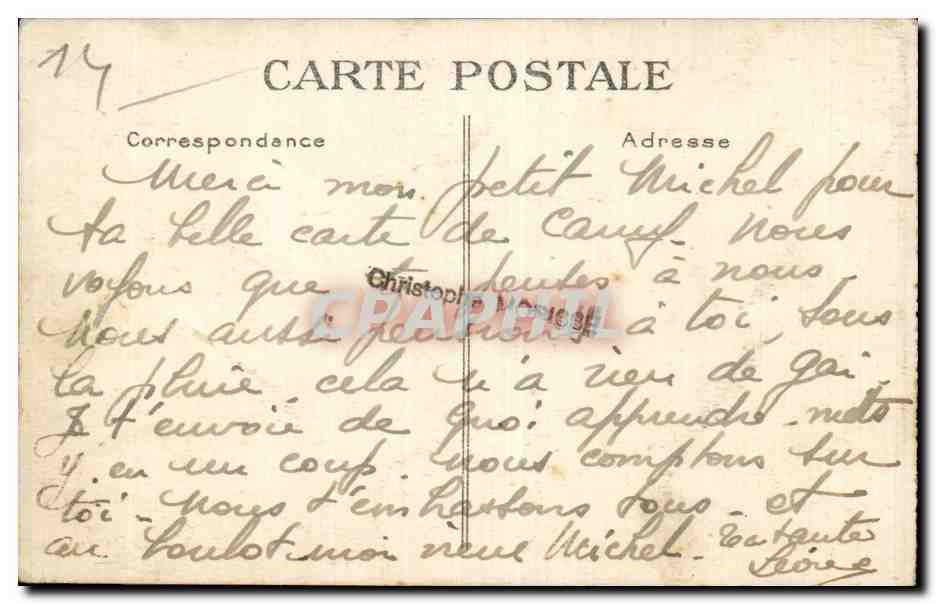 14
CARTE POSTALE
Correspondance
Adresse
Merci mon petit Michel pour
ta belle carte de Nous
voyons que tu penses à nous.
Nous aussi pensions à toi, sous
la pluie cela n'a rien de gai.
Je t'envoie de quoi apprendre. mets
y en un coup. Nous comptons sur
toi. Nous t'embrassons tous. et
au boulot mon vieux Michel. Ta tante
Christophe
CPAPHIL